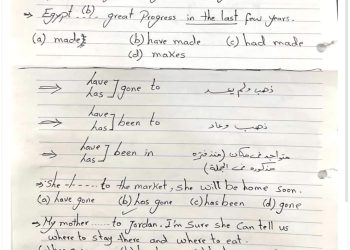 → Egypt (b) great Progress in the last few years.
(a) made (b) have made (c) had made
(d) makes
⇒ have has ] gone to ذهب ولم يعد
⇒ have has ] been to ذهب وعاد
⇒ have has ] been in متواجد فى مكان (منذ فترة
مذكورة فى الجملة)
→ She ....... to the market, she will be home soon.
(a) have gone (b) has gone (c) has been (d) gone
→ My mother ...... to Jordan. I'm sure she can tell us
where to stay there and where to eat.